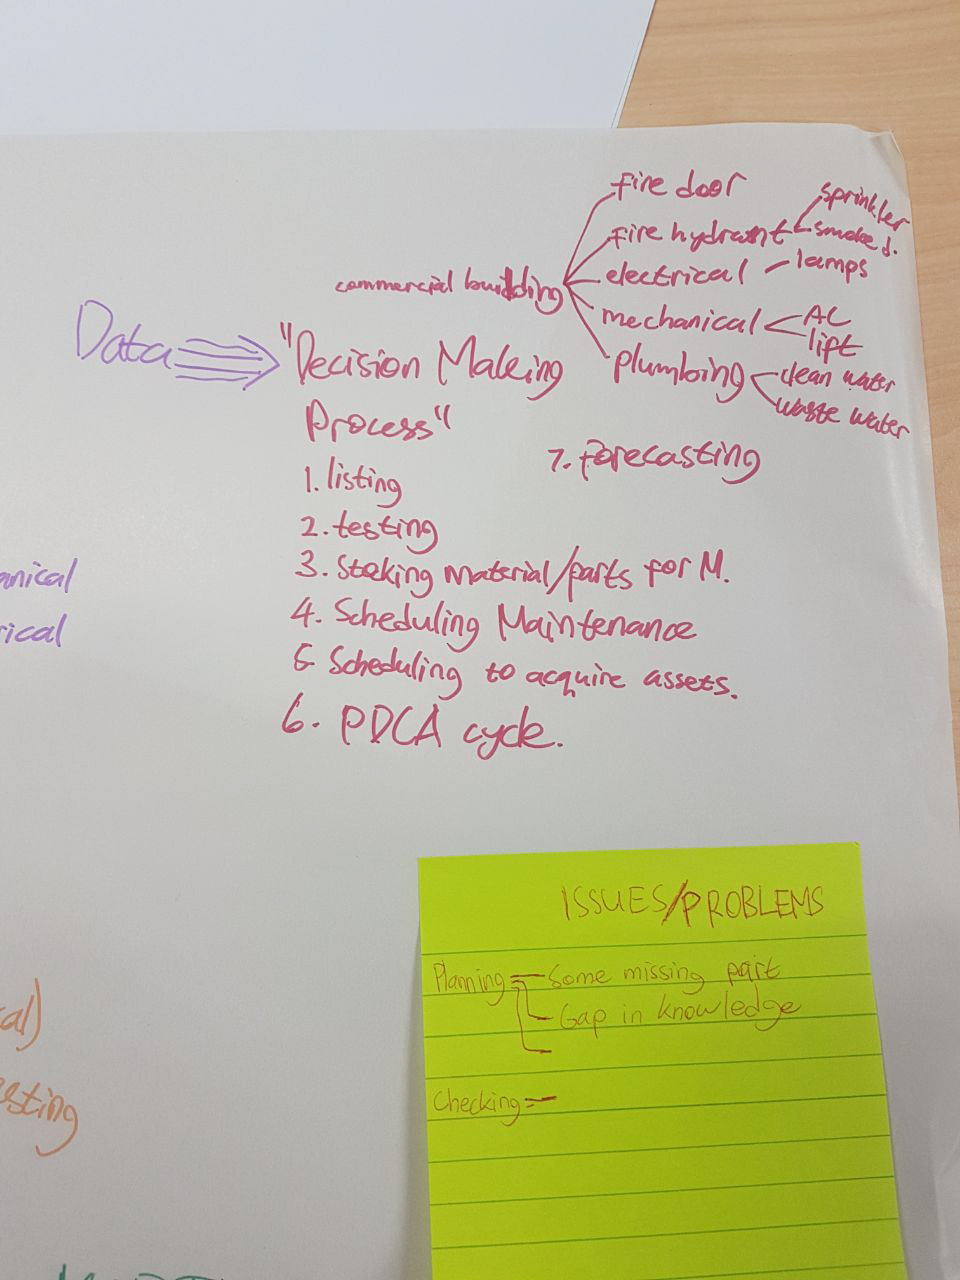 fire door
sprinkler
fire hydrant
smoke d.
electrical
lamps
commercial building
mechanical
AC
lift
plumbing
clean water
waste water
Data
"Decision Making
Process"
1. listing
2. testing
3. Stoking Material/parts for M.
4. Scheduling Maintenance
5 Scheduling to acquire assets.
6. PDCA cycle.
7. Forecasting
anical
rical
cal)
sting
ISSUES/PROBLEMS
Planning
Some missing part
Gap in knowledge
Checking